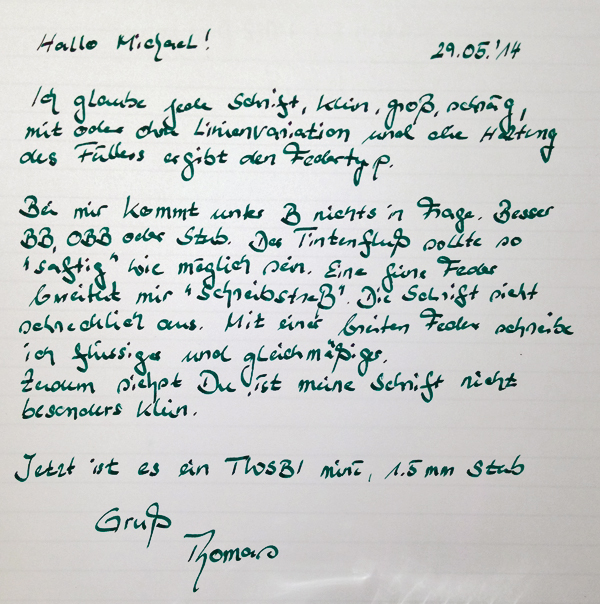 Hallo Michael!
29.05.'14
Ich glaube jede Schrift, klein, groß, schräg,
mit oder ohne Linienvariation und die Haltung
des Füllers ergibt den Federtyp.
Bei mir kommt unter B nichts in Frage. Besser
BB, OBB oder Stub. Der Tintenfluß sollte so
"saftig" wie möglich sein. Eine feine Feder
bereitet mir "Schreibstreß". Die Schrift sieht
schrecklich aus. Mit einer breiten Feder schreibe
ich flüssiger und gleichmäßiger.
Zudem siehst Du, ist meine Schrift nicht
besonders klein.
Jetzt ist es ein TWSBI mini, 1.5 mm Stub
Gruß
Thomas